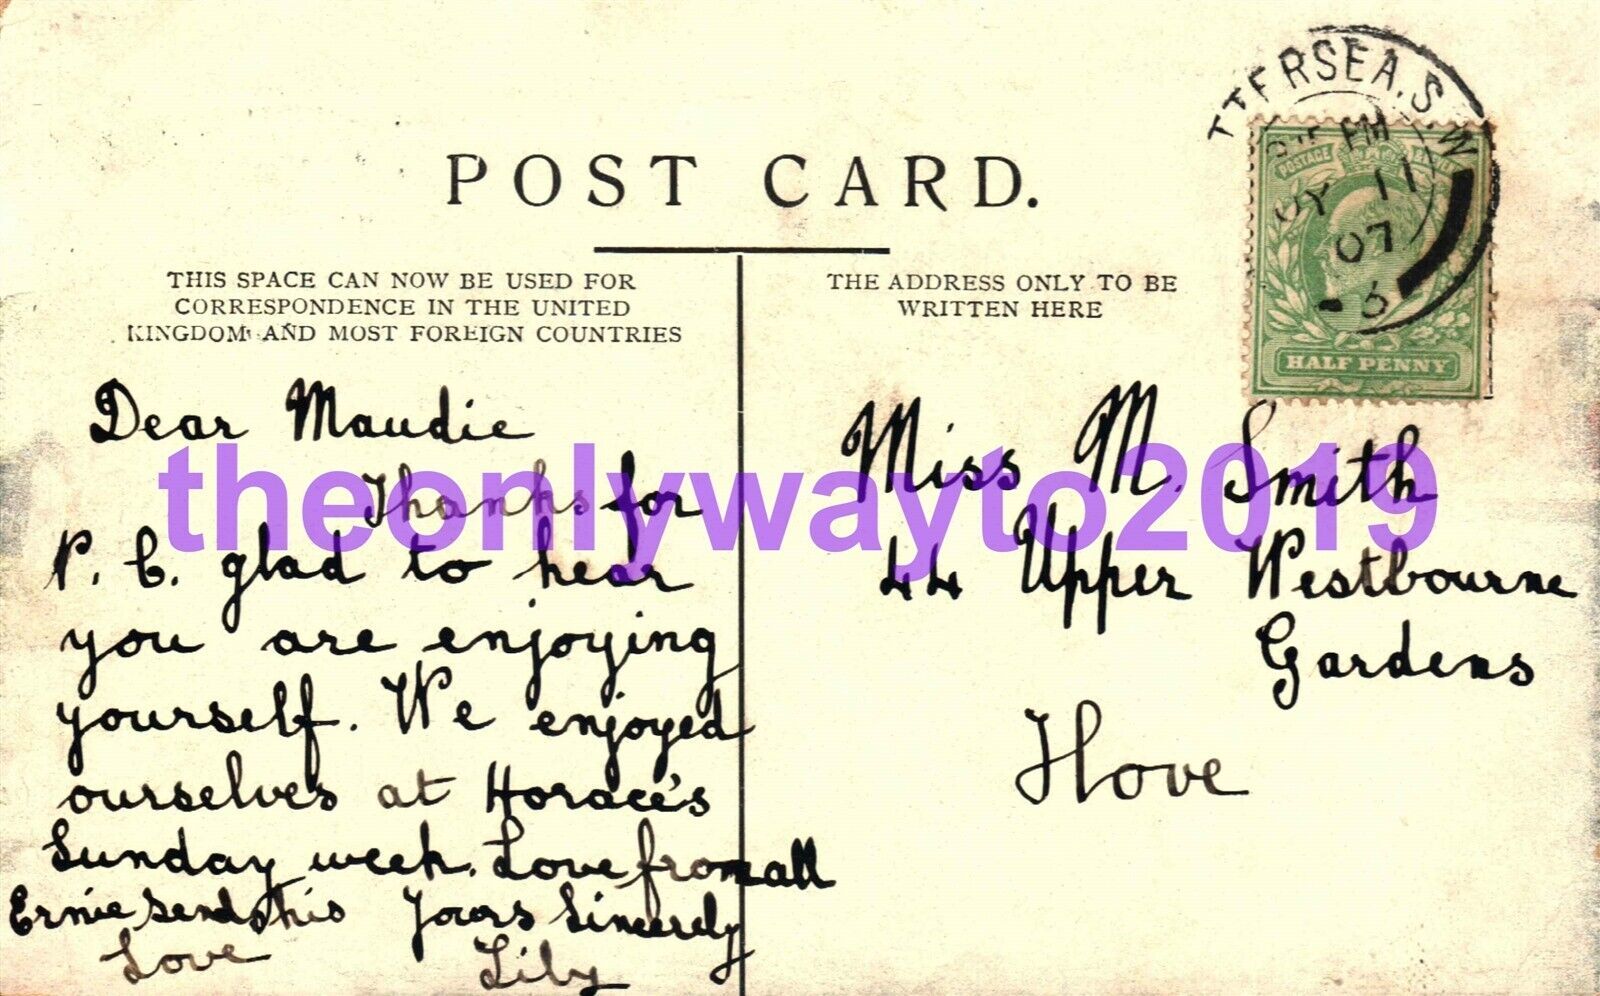 POST CARD.
THIS SPACE CAN NOW BE USED FOR
CORRESPONDENCE IN THE UNITED
KINGDOM AND MOST FOREIGN COUNTRIES
THE ADDRESS ONLY TO BE
WRITTEN HERE
TTERSEA.S.W
PM
JY 11
07
POSTAGE
HALF PENNY
Dear Maudie
Thanks for
P. C. glad to hear
you are enjoying
yourself. We enjoyed
ourselves at Horace's
Sunday week. Love from all
Ernie sends his
Love
Yours Sincerely
Lily
Miss M. Smith
44 Upper Westbourne
Gardens
Hove
theonlywayto2019